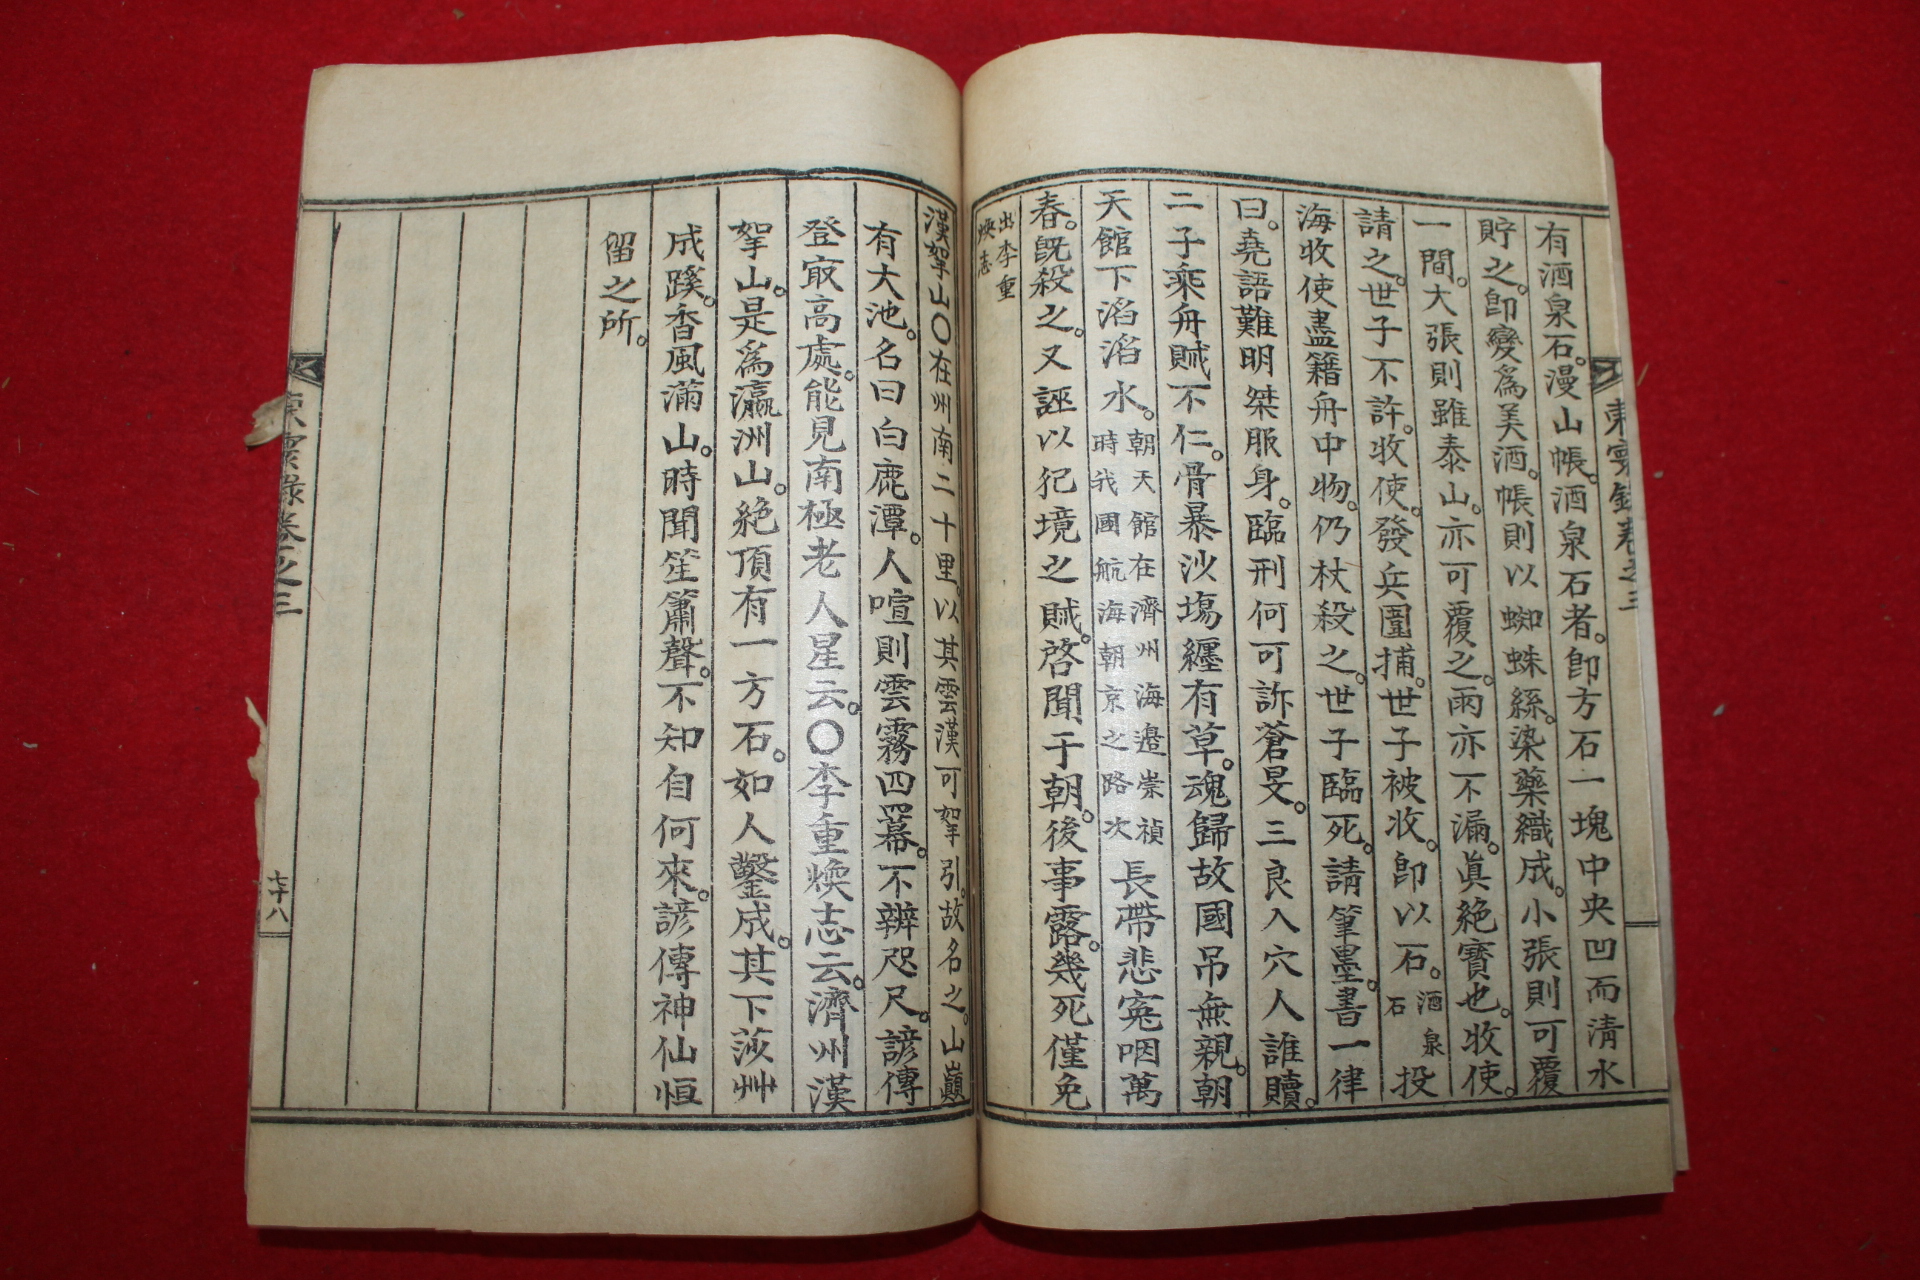 有酒泉石。漫山帳。酒泉石者。卽方石一塊中央凹而淸水
貯之。卽變爲美酒。帳則以蜘蛛絲。染藥織成。小張則可覆
一間。大張則雖泰山。亦可覆之。雨亦不漏。眞絶寶也。收使。
請之。世子不許。收使。發兵圍捕。世子被收。卽以石。酒泉石投
海收使盡籍舟中物。仍杖殺之。世子臨死。請筆墨。書一律
曰。堯語難明桀服身。臨刑何可訴蒼旻。三良入穴人誰贖。
二子乘舟賊不仁。骨暴沙塲纏有草。魂歸故國吊無親。朝
天館下滔滔水。朝天館在濟州海邉崇禎時我國航海朝京之路次長帶悲寃咽萬
春。旣殺之。又誣以犯境之賊。啓聞于朝。後事露。幾死僅免
出李重煥志
漢拏山〇在州南二十里。以其雲漢可拏引。故名之。山巓
有大池。名曰白鹿潭。人喧則雲霧四羃。不辨咫尺。諺傳
登㝡高處。能見南極老人星云。〇李重煥志云。濟州漢
拏山。是爲瀛洲山。絶頂有一方石。如人鑿成。其下莎艸
成蹊。香風滿山。時聞笙簫聲。不知自何來。諺傳神仙恒
留之所。
東寰錄卷之三
七十八